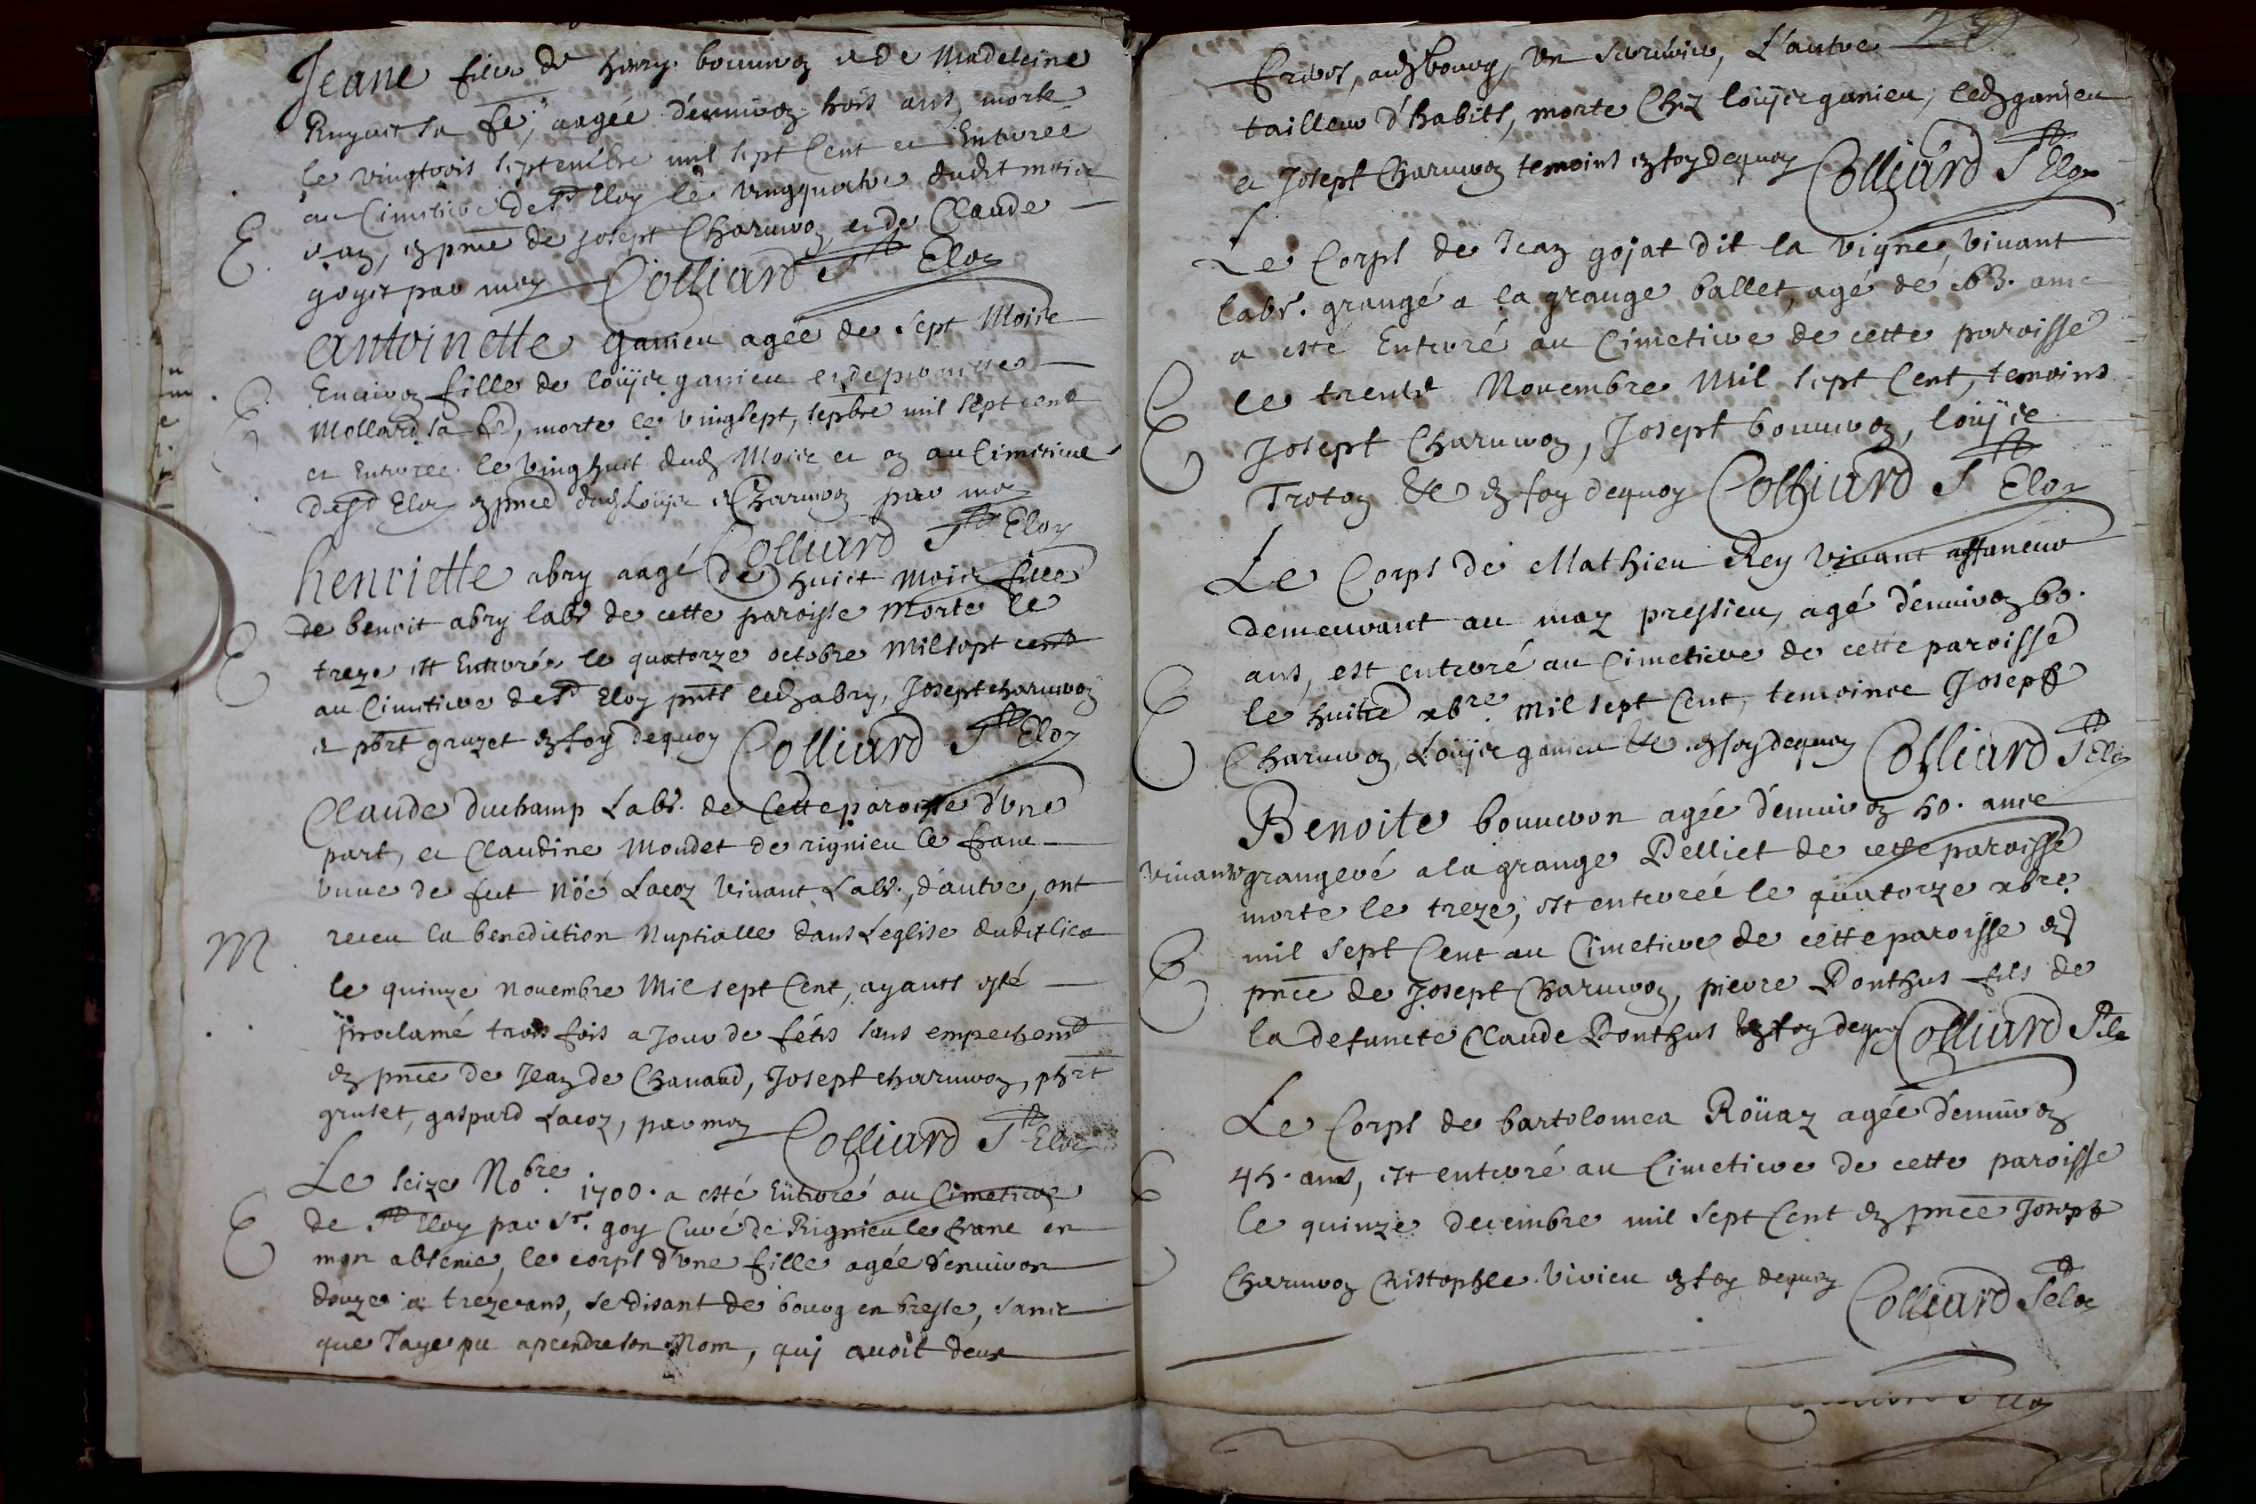 Jeane fille de henry bouuron e de Madeleine
sa fe, aagée d'enuiron trois ans, morte
le vingtrois septembre mil sept Cent et Enterree
au Cimetiere de St Eloy le vingquatre dudit moise
et an, en pnce de Joseph Charuron et de Claude
goyet par moy Colliard St Eloy
E.
antoinette ganieu agée de sept Moise
Enuiron fille de loüyse ganieu et de
Mollard sa fe, morte le vingsept, sepbre mil sept cent
et Enterree le vinghuit dud Moise et an au Cimetiere
de St Eloy en pnce dud Louyse e Charuron par moy
Colliard St Eloy
E
henriette abry aagé de huict moise fille
de benoit abry labr de cette paroisse morte le
treze est Enterrée le quatorze octobre Mil sept cent
au Cimetiere de St Eloy pnts led abry, Joseph charuron
e phrt gruzet en foy dequoy Colliard St Eloy
E
Claude duchamp Labr. de Cette paroisse d'vne
part, et Claudine Moudet de rignieu le franc
vuue de fut Nöé Lacoz viuant Labr., d'autre, ont
receu la benediction Nuptialle dans Leglise dudit lieu
M
le quinze nouembre Mil sept Cent, ayants esté
proclamé trois fois a Jour de fétes sans empechemt
en pnce de Jean de Chanaud, Joseph charuron, phrt
gruset, gaspard Lacoz, par moy Colliard St Eloy
Le seize Nobre. 1700. a esté Enterré au Cimetiere
de St Eloy par Sr. goy Curé de Rignieu le franc en
mon absence, le corps d'vne fille agée d'enuiron
E
douze a treze ans, se disant de bourg en bresse, sans
que J'aye pu aprendre son Nom, qui auoit deux
freres, aud bourg, vn serurier, L'autre
tailleur d'habits, morte Chez loüyse ganieu, led ganieu
et Joseph Charuron temoins en foy dequoy Colliard St Eloy
Le Corps de Jean gojat dit la vigne, viuant
labr. grangé a la grange ballet, agé de 63. ans
a esté Enterré au Cimetiere de cette paroisse
le trente Nouembre Mil sept Cent, temoins
E
Joseph Charuron, Joseph bouuron, loüyse
Troton &c en foy dequoy Colliard St Eloy
Le Corps de Mathieu Rey viuant affaneur
demeurant au maz pressieu, agé d'enuiron 60.
ans, est enterré au Cimetiere de cette paroisse
le huitie xbre. mil sept Cent, temoins Joseph
E
Charuron, Loüyse ganieu &c. en foy dequoy Colliard St Eloy
Benoite bouueron agée d'enuiron 50. ans
viuante grangere a la grange Pelliet de cette paroisse
morte le treze, est enterrée le quatorze xbre
mil sept Cent au Cimetiere de cette paroisse en
E
pnce de Joseph Charuron, pierre Ponthus fils de
la defuncte Claude Ponthus en foy dequoy Colliard St Elo
Le Corps de bartolomea Roüaz agée d'enuiron
45. ans, est enterré au Cimetiere de cette paroisse
E
le quinze decembre mil sept Cent en pnce Joseph
Charuron Christophle Viuieu en foy dequoy
Colliard St eloy